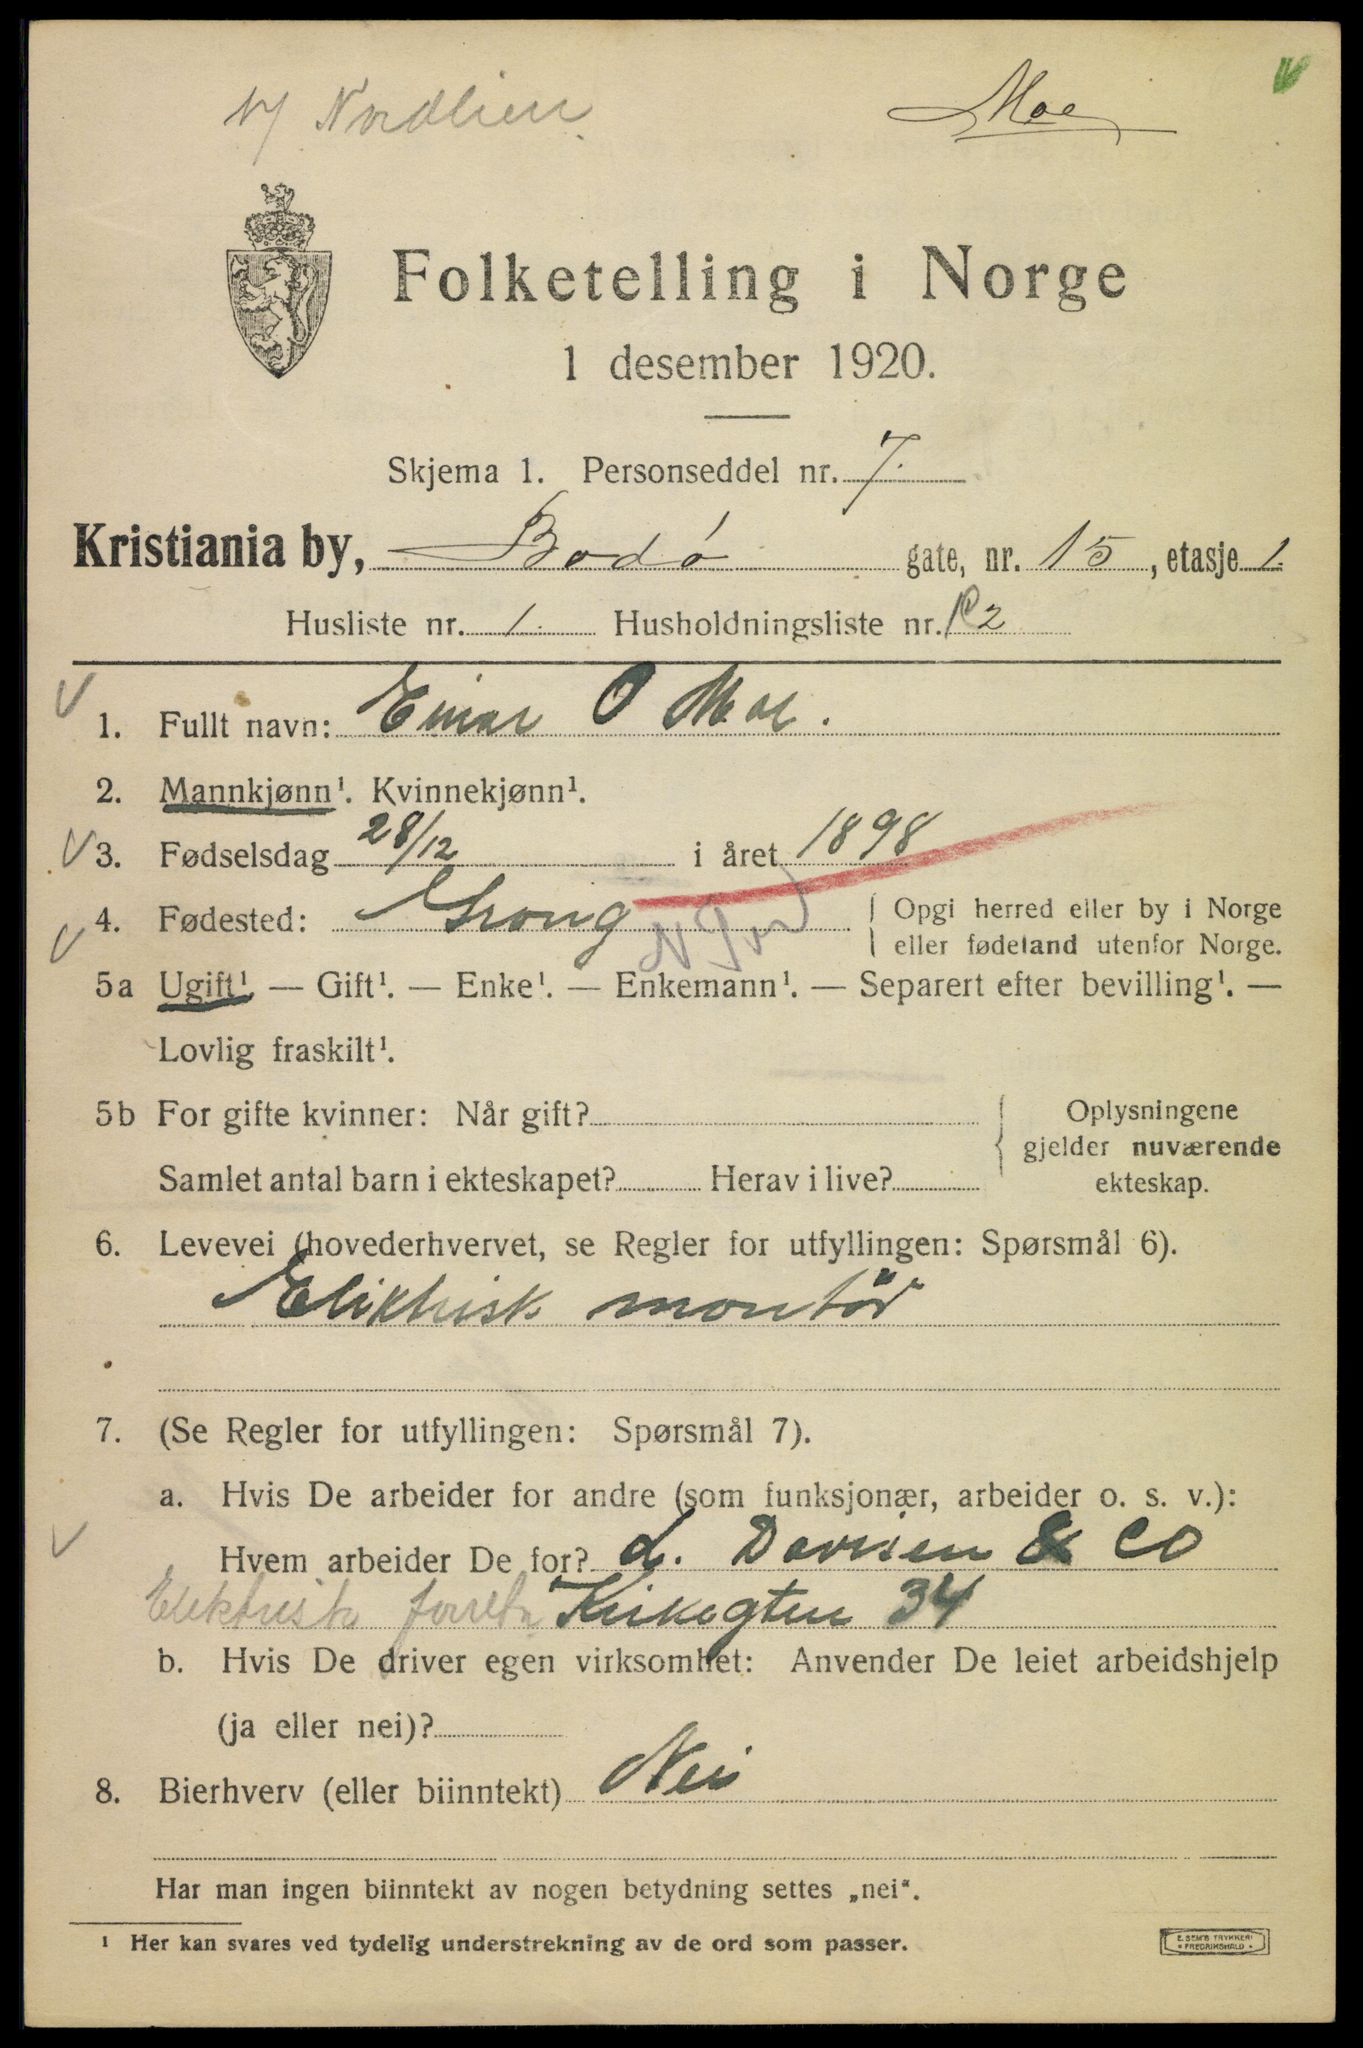 v/ Nordlien
Moe
Folketelling i Norge
1 desember 1920.
Skjema 1. Personseddel nr. 7.
Kristiania by, Bodø gate, nr. 15, etasje 1.
Husliste nr. 1. Husholdningsliste nr. 2
1. Fullt navn: Einar O Moe.
2. Mannkjønn¹. Kvinnekjønn¹.
3. Fødselsdag 28/12 i året 1898
4. Fødested: Grong
Opgi herred eller by i Norge
eller fødeland utenfor Norge.
5a Ugift¹. — Gift¹. — Enke¹. — Enkemann¹. — Separert efter bevilling¹. —
Lovlig fraskilt¹.
5b For gifte kvinner: Når gift?
Samlet antal barn i ekteskapet? Herav i live?
Oplysningene
gjelder nuværende
ekteskap.
6. Levevei (hovederhvervet, se Regler for utfyllingen: Spørsmål 6).
Elektrisk montör
7. (Se Regler for utfyllingen: Spørsmål 7).
a. Hvis De arbeider for andre (som funksjonær, arbeider o. s. v.):
Hvem arbeider De for? L. Davisen & CO
Elektrisk forretn Kirkegten 34
b. Hvis De driver egen virksomhet: Anvender De leiet arbeidshjelp
(ja eller nei)?
8. Bierhverv (eller biinntekt) Nei
Har man ingen biinntekt av nogen betydning settes „nei“.
¹ Her kan svares ved tydelig understrekning av de ord som passer.
E. SEM'S TRYKKERI
FREDRIKSHALD